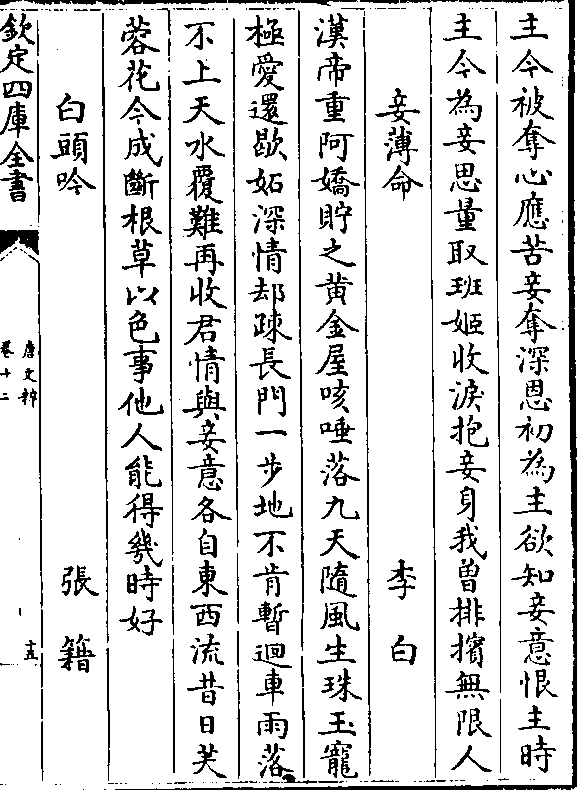 主今被奪心應苦妾奪深恩初為主欲知妾意恨主時
主今為妾思量取班姬收淚抱妾身我曽排擯無限人
妾薄命 李白
漢帝重阿嬌貯之黄金屋咳唾落九天隨風生珠玉寵
極愛還歇妬深情却疎長門一步地不肯暫迴車雨落
不上天水覆難再收君情與妾意各自東西流昔日芙
蓉花今成斷根草以色事他人能得幾時好
白頭吟 張籍
欽定四庫全書
唐文粹
卷十二
十五